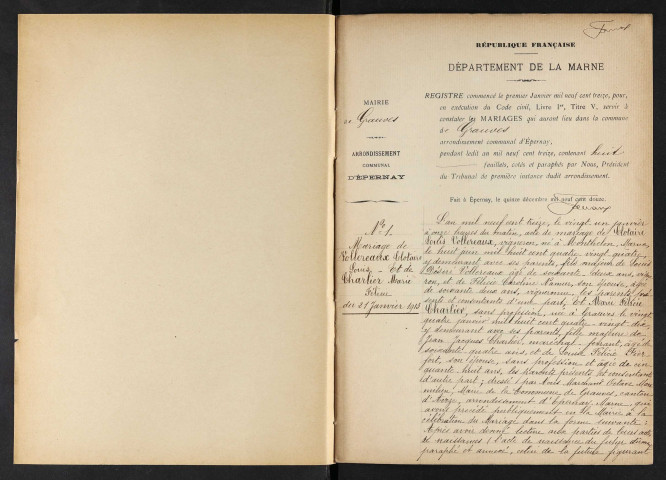 RÉPUBLIQUE FRANÇAISE
DÉPARTEMENT DE LA MARNE
MAIRIE
de Grauves
ARRONDISSEMENT
COMMUNAL
D'ÉPERNAY
REGISTRE commencé le premier Janvier mil neuf cent treize, pour,
en exécution du Code civil, Livre Ier, Titre V, servir à
constater les MARIAGES qui auront lieu dans la commune
de Grauves
arrondissement communal d'Épernay,
pendant ledit an mil neuf cent treize, contenant huit
feuillets, cotés et paraphés par Nous, Président
du Tribunal de première instance dudit arrondissement.
Fait à Épernay, le quinze décembre mil neuf cent douze.
No 1.
Mariage de
Vollereaux Clotaire
Louis - Et de
Charlier Marie
Féline
du 21 Janvier 1913
L'an mil neuf cent treize, le vingt un janvier
à onze heures du matin, acte de mariage de Clotaire
Louis Vollereaux, vigneron, né à Monthelon, Marne,
le huit juin mil huit cent quatre vingt quatre
y demeurant avec ses parents, fils majeur de Louis
Désiré Vollereaux âgé de soixante deux ans, vigne-
ron, et de Félicie Caroline son épouse, âgée
de soixante deux ans, vigneronne, les parents pré-
sents et consentants d'une part, Et Marie Féline
Charlier, sans profession, née à Grauves le vingt
quatre janvier mil huit cent quatre vingt dix,
y demeurant avec ses parents, fille majeure de
Jean Jacques Charlier, maréchal ferrant, âgé de
soixante quatre ans, et de Louise Féline
son épouse, sans profession et âgée de cin-
quante huit ans, les parents présents et consentants
d'autre part; dressé par Nous Marchand Octave
Maire de la Commune de Grauves, canton
d'Avize, arrondissement d'Epernay, Marne, qui
avons procédé publiquement en la Mairie à la
célébration du Mariage dans la forme suivante:
Après avoir donné lecture aux parties de leurs actes
de naissances, l'acte de naissance du futur dûment
paraphé et annexé, celui de la future figurant